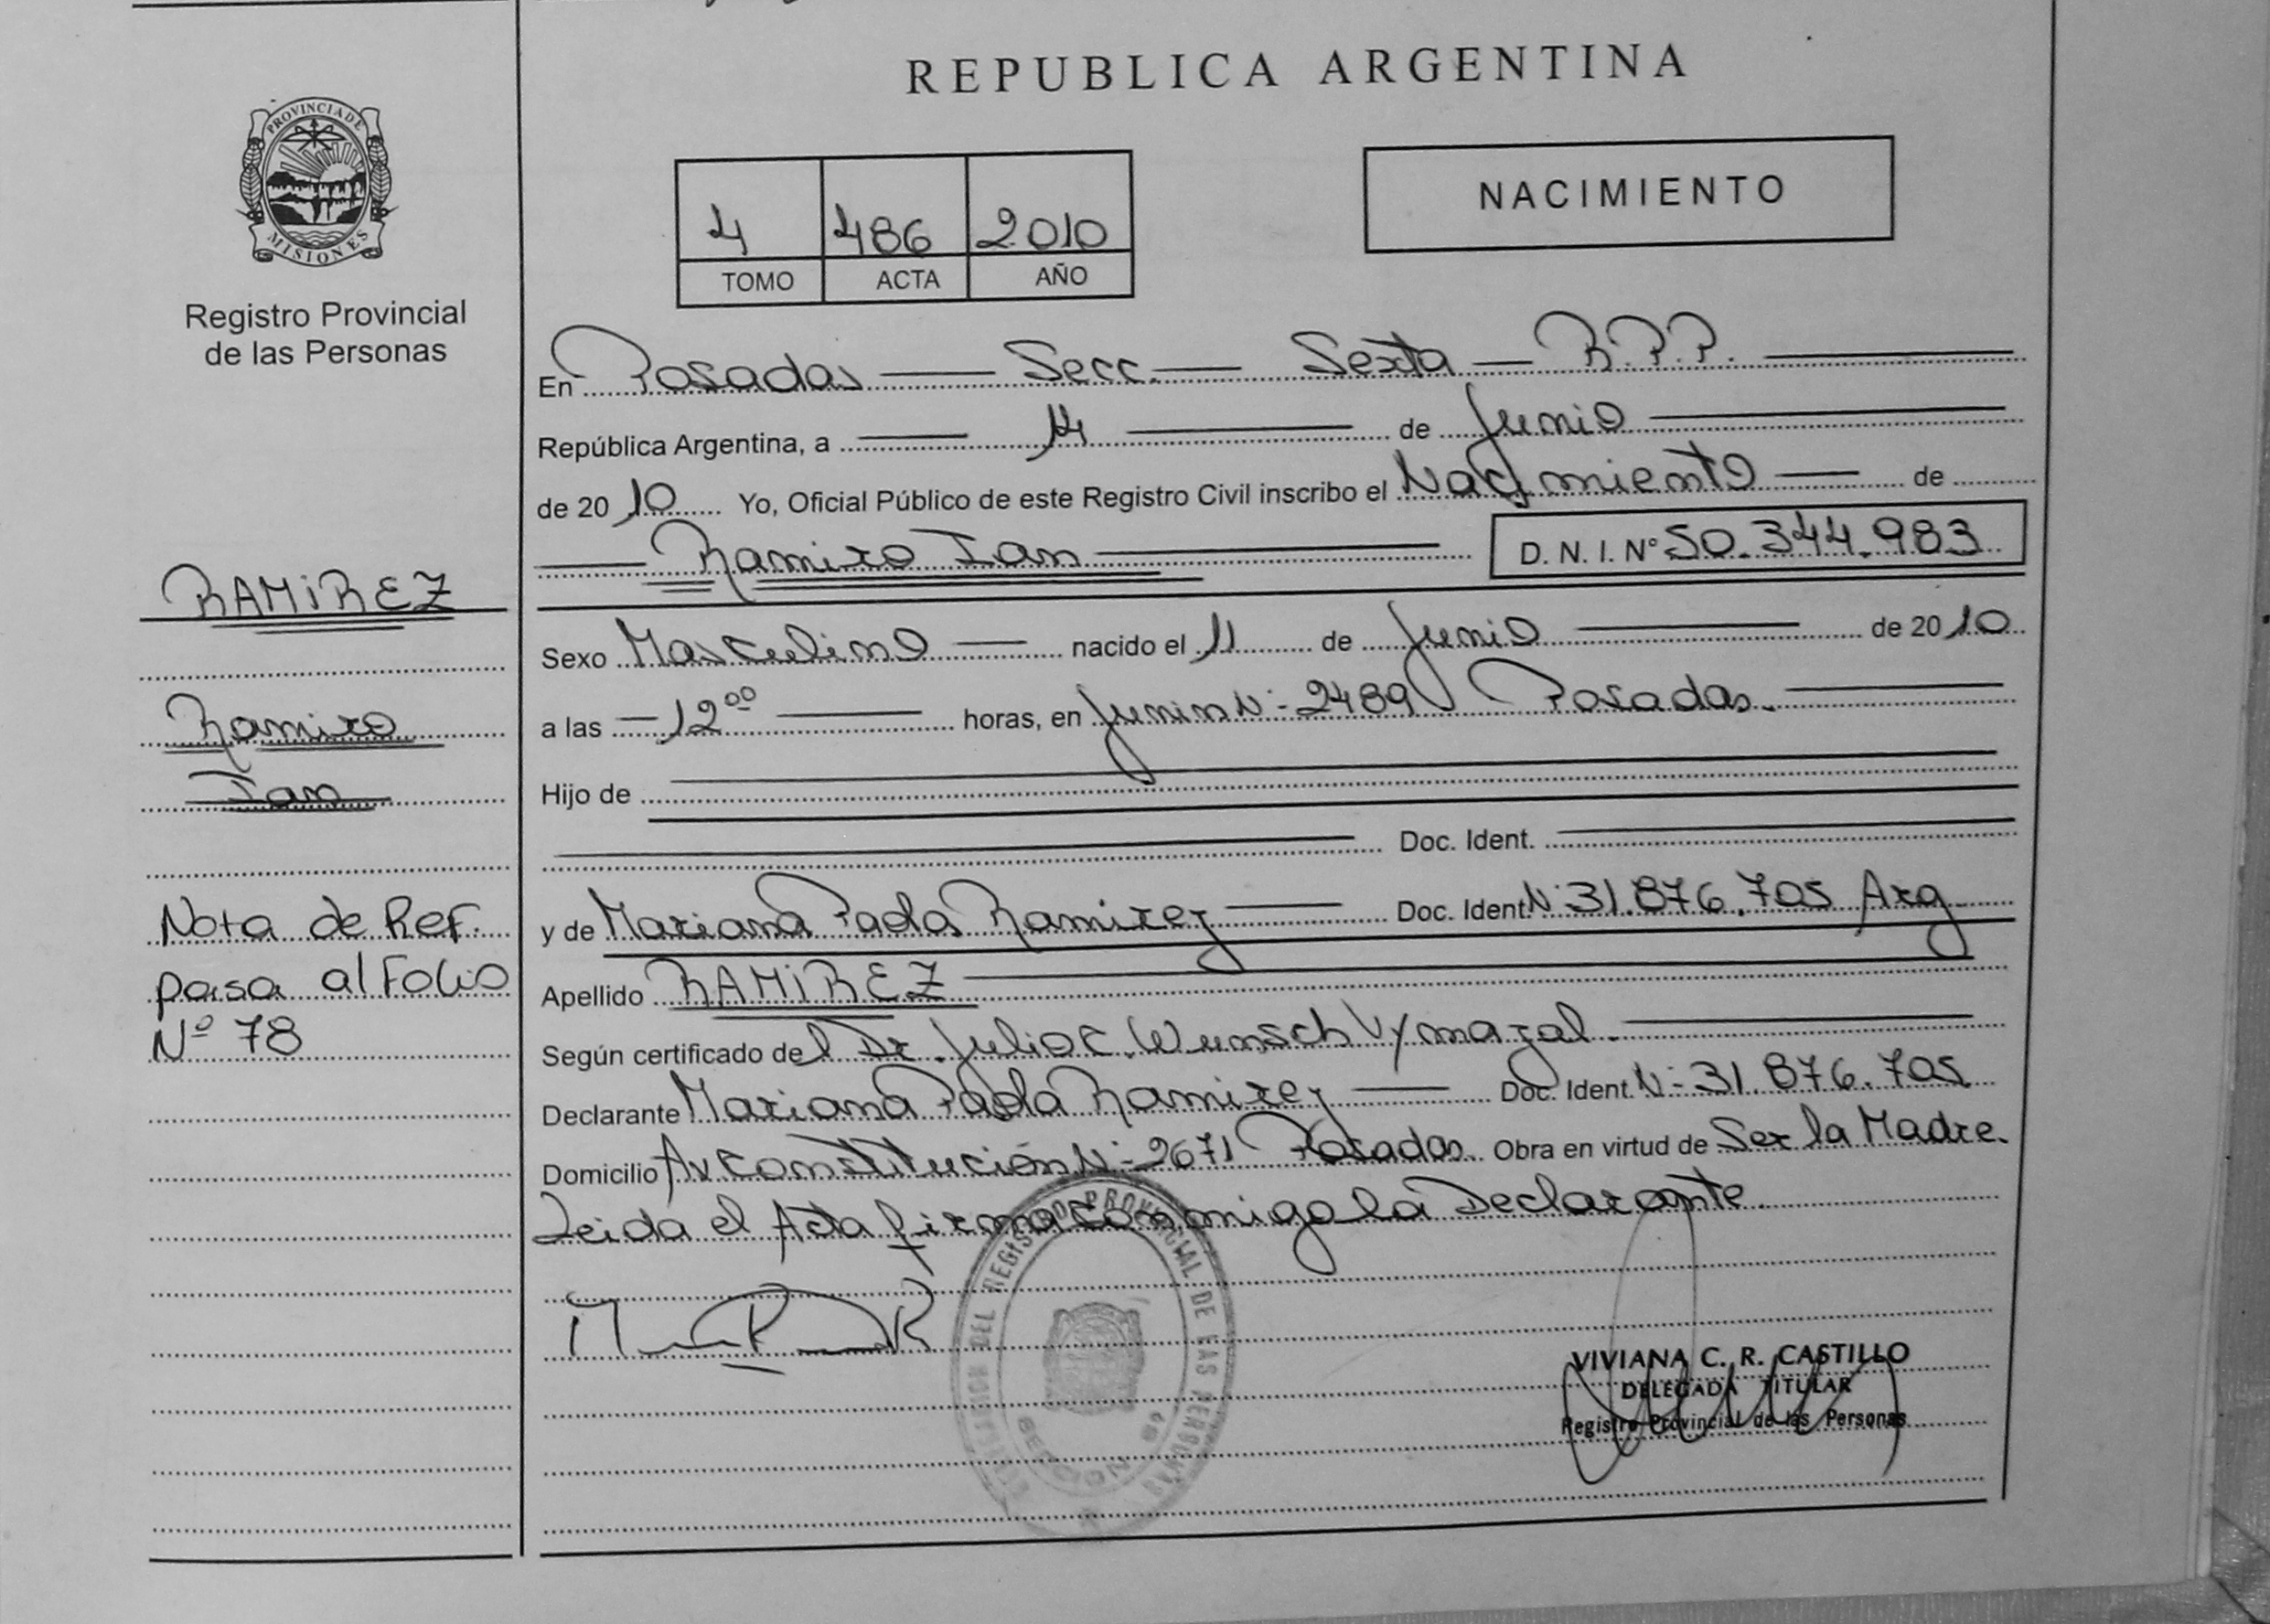 REPUBLICA ARGENTINA
PROVINCIA DE
MISIONES
Registro Provincial
de las Personas
4 486 2010
TOMO ACTA AÑO
NACIMIENTO
En Posadas — Secc. — Sexta — R.P.P.
República Argentina, a 14 de Junio
de 2010 Yo, Oficial Público de este Registro Civil inscribo el Nacimiento de
Ramiro Ian D. N. I. N° 50.344.983
RAMIREZ
Ramiro
Ian
Nota de Ref.
pasa al Folio
Nº 78
Sexo Masculino nacido el 11 de Junio de 2010
a las 12 00 horas, en Junin N- 2489 Posadas.
Hijo de
Doc. Ident.
y de Mariana Paola Ramirez Doc. Ident. N- 31.876.705 Arg
Apellido RAMIREZ
Según certificado del Dr. Julio C. Wunsch Vymazal.
Declarante Mariana Paola Ramirez Doc. Ident. N- 31.876.705
Domicilio Av Constitución N- 2671 Posadas. Obra en virtud de Ser la Madre.
Leida el Acta firma conmigo la Declarante.
REGISTRO PROVINCIAL DE LAS PERSONAS
SECCION 6a
VIVIANA C. R. CASTILLO
DELEGADA TITULAR
Registro Provincial de las Personas